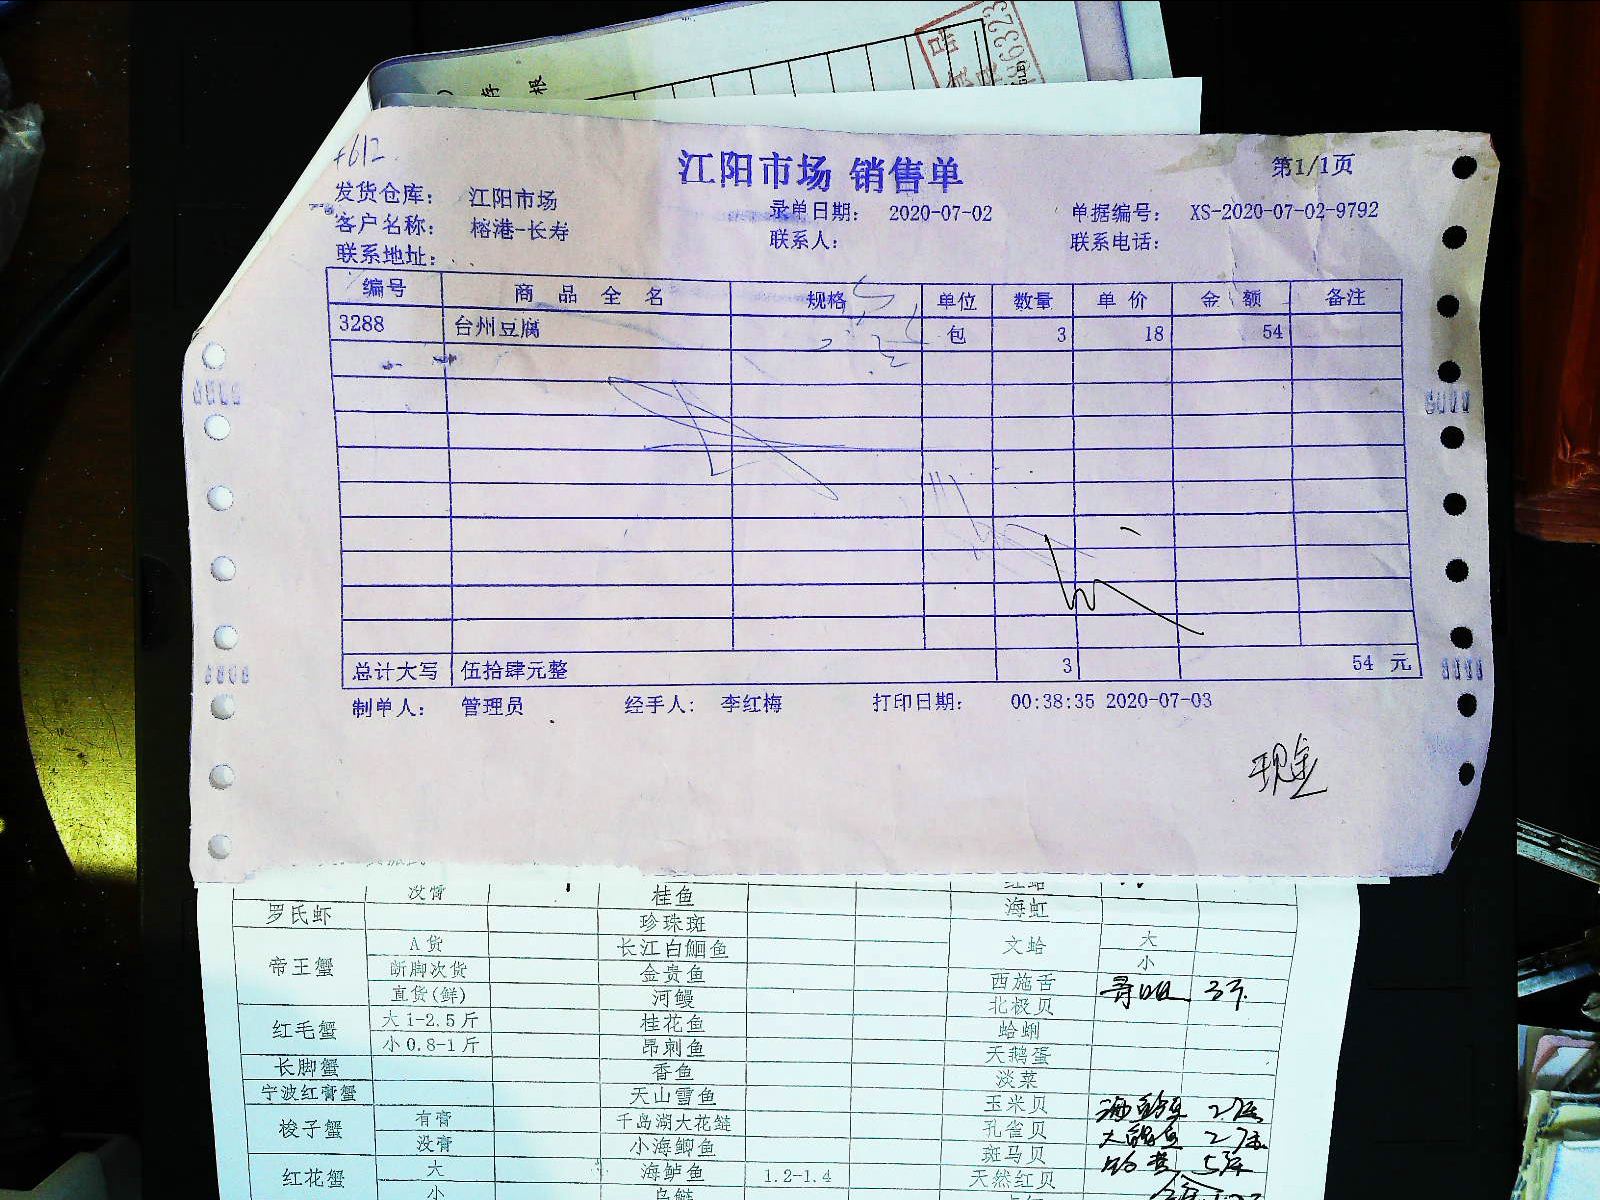 存 根
+612
江阳市场 销售单
第1/1页
发货仓库： 江阳市场 录单日期： 2020-07-02 单据编号： XS-2020-07-02-9792
客户名称： 榕港-长寿 联系人： 联系电话：
联系地址：
编号 商品全名 规格 单位 数量 单价 金额 备注
3288 台州豆腐 包 3 18 54
总计大写 伍拾肆元整 3 54 元
制单人： 管理员 经手人： 李红梅 打印日期： 00:38:35 2020-07-03
现金
没膏 桂鱼
罗氏虾 珍珠斑 海虹
帝王蟹 A货 长江白鮰鱼 文蛤 大
断脚次货 金贵鱼 小
直货(鲜) 河鳗 西施舌
红毛蟹 大1-2.5斤 桂花鱼 北极贝
小0.8-1斤 昂刺鱼 蛤蜊
长脚蟹 香鱼 天鹅蛋
宁波红膏蟹 天山雪鱼 淡菜
梭子蟹 有膏 千岛湖大花鲢 玉米贝
没膏 小海鲫鱼 孔雀贝
红花蟹 大 海鲈鱼 1.2-1.4 斑马贝
小 乌鲢 天然红贝